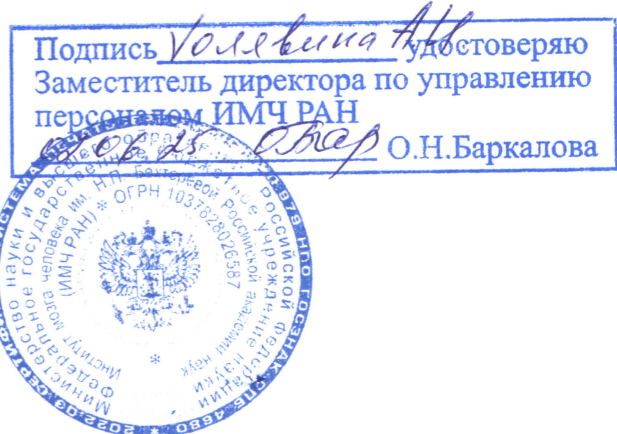 Подпись Холявина А.И. удостоверяю
Заместитель директора по управлению
персоналом ИМЧ РАН
02.06.25 О.Н.Баркалова
Министерство науки и высшего образования Российской Федерации
Федеральное государственное бюджетное учреждение науки
Институт мозга человека им. Н.П. Бехтеревой Российской академии наук
(ИМЧ РАН) * ОГРН 1037828026587
*